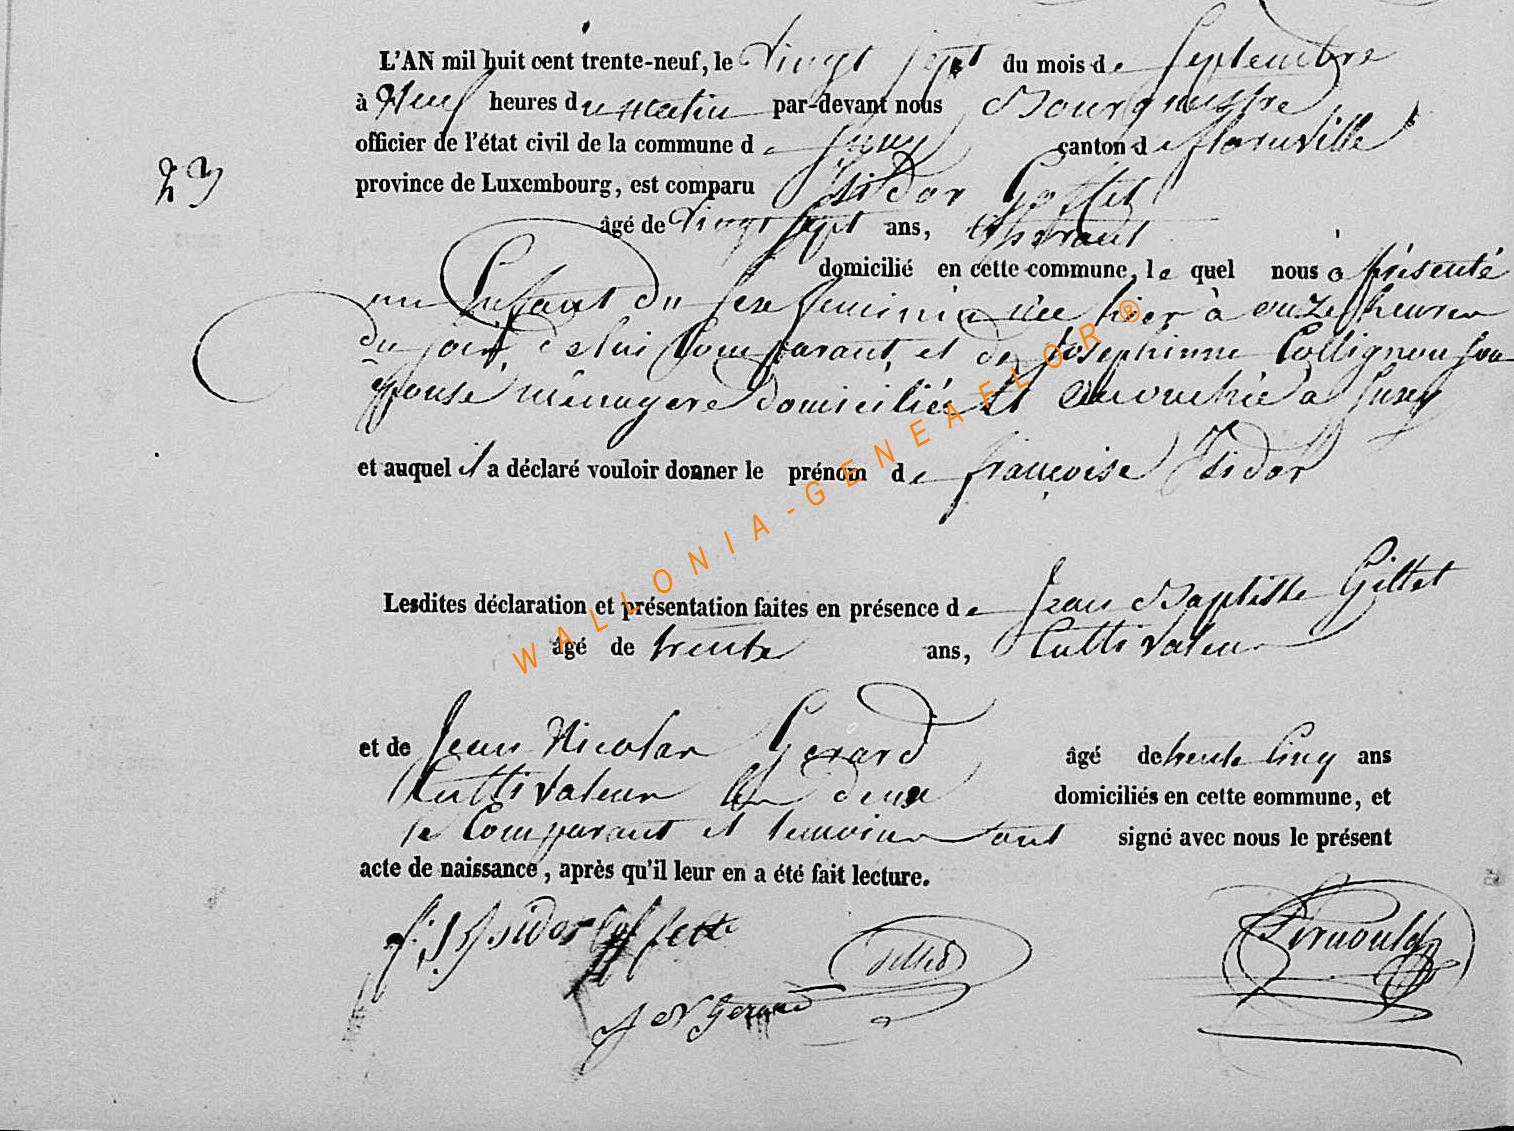 L'AN mil huit cent trente-neuf, le Vingt sept du mois de Septembre
à Neuf heures du matin par-devant nous Bourgmestre
officier de l'état civil de la commune de Jzel canton de florenville
23
province de Luxembourg, est comparu Isidor Goffet
âgé de Vingt sept ans,
domicilié en cette commune, le quel nous a présenté
un Enfant du sexe feminin née hier à onze heures
du soir, de lui Comparant, et de Josephinne Collignon son
Epouse ménagere domiciliée et accouchée à
et auquel il a déclaré vouloir donner le prénom de françoise Isidor
WALLONIA-GENEAFLOR®
Lesdites déclaration et présentation faites en présence de Jean Baptiste Gillet
âgé de trente ans, Cultivateur
et de Jean Nicolas Gerard âgé de trente Cinq ans
Cultivateur les deux domiciliés en cette commune, et
le Comparant et temoins ont signé avec nous le présent
acte de naissance, après qu'il leur en a été fait lecture.
Isidor Goffette
Gillet
J N Gerard